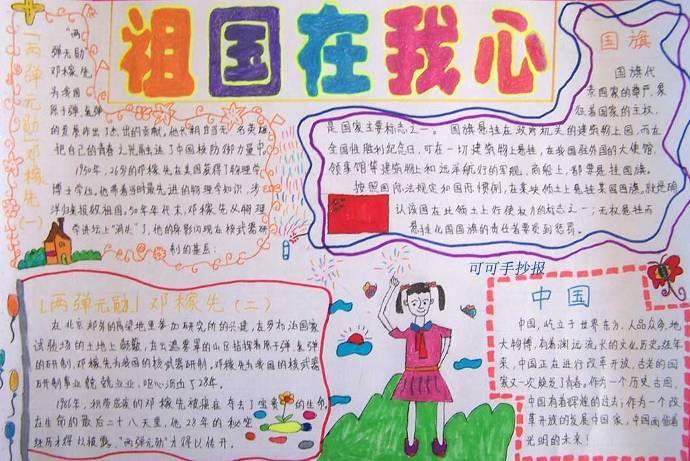 祖国在我心
「两弹元勋」邓稼先（一）
"两
弹元勋"
邓稼先
为我国
原子弹、氢弹
的发展作出了杰出的贡献。他长期自当无名英雄
把自己的青春之光融进了中国核防御力量中。
1950年,26岁的邓稼先在美国获得了物理学
博士学位。他带着当时最先进的物理学知识,涉
洋归来报效祖国。50年年代末,邓稼先从物理
学讲坛上"消失"了,他的身影闪现在核武器研
制的基点:
国旗
国旗代
表国家的尊严,象
征着国家的主权,
是国家主要标志之一。国旗悬挂在政府机关的建筑物上国,而在
全国性胜利纪念日,可在一切建筑物上悬挂,在我国驻外国的大使馆,
领事馆等建筑物上和远洋航行的军舰、商船上,都要悬挂国旗。
按照国际法规定和国际惯例,在某块领土上悬挂某国国旗,就是明
认该国在此领土上行使权力的标志之一;无权悬挂而
悬挂他国国旗的责任者要受到惩罚。
可可手抄报
「两弹元勋」邓稼先（二）
在北京郊外的
试验场的土地上
的研制,邓稼先为我国的核武器研制。邓稼先为我国的核武器
研制事业兢兢业业,呕心沥血了28年。
1986年,积劳成疾的邓稼先被癌症夺去了宝贵的生命。
在生命的最后二十八天里,他28年的秘密
经历才得以披露,"两弹元勋"才得以传开。
中国
中国,屹立于世界东方,人品众多,地
大物博,有着渊远流长的文化历史。近年
来,中国正在进行改革开放,古老的国
家又一次焕发了青春。作为一个历史古国,
中国有着辉煌的过去;作为一个改
革开放的发展中国家,中国面临着
光明的未来!